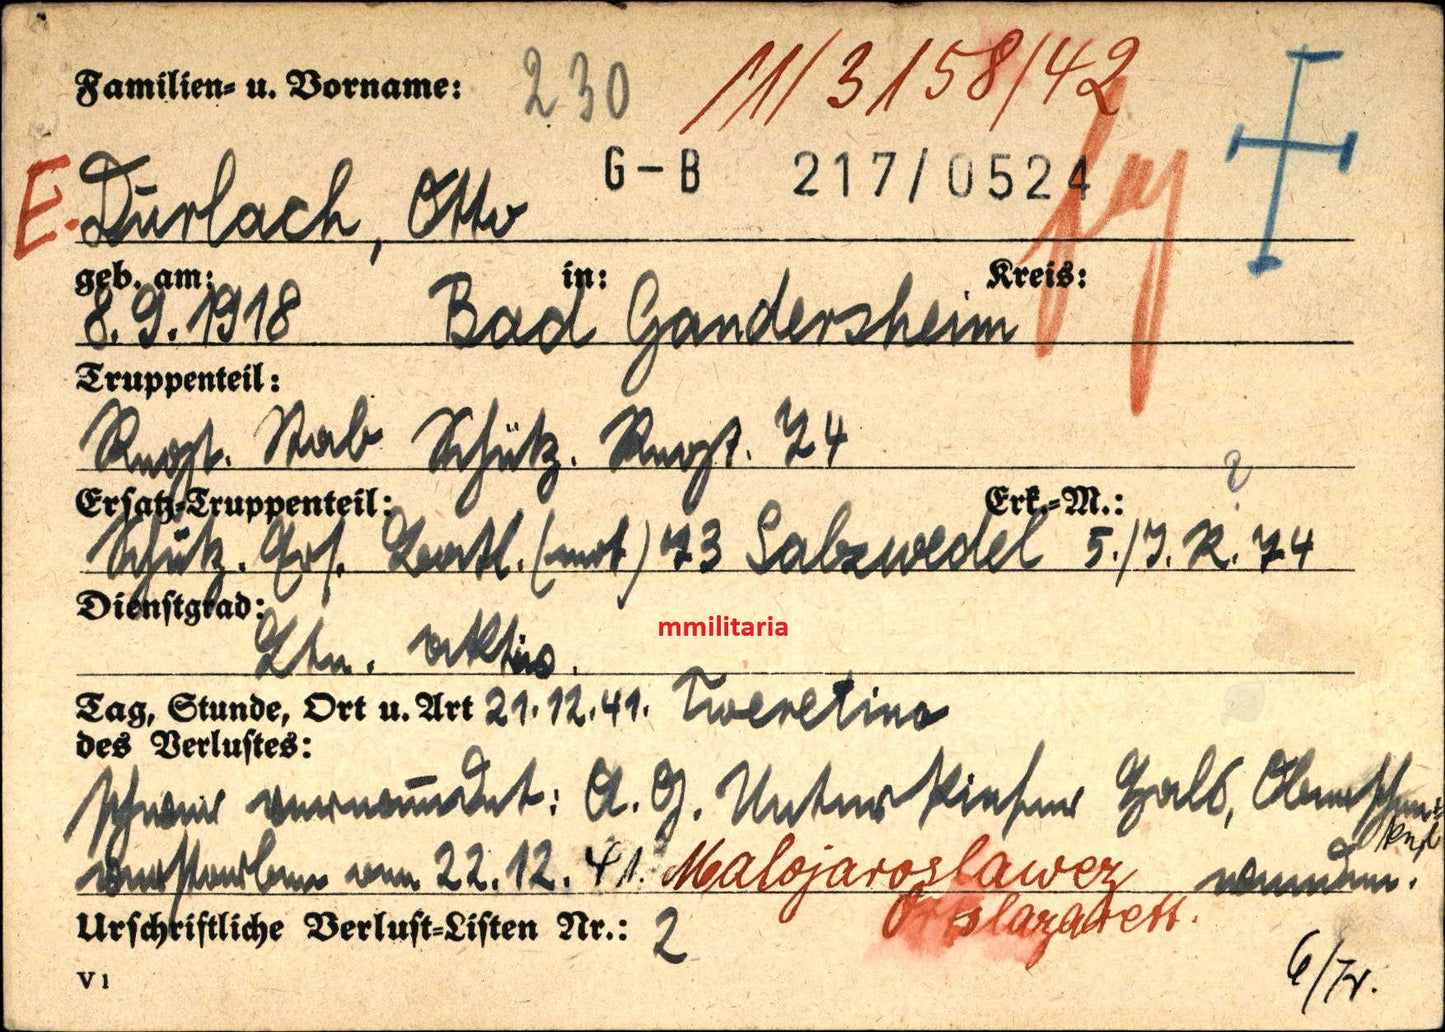 Familien- u. Vorname: 230 11/3158/42
E. Durlach, Otto G-B 217/0524
geb. am: in: Kreis:
8.9.1918 Bad Gandersheim
Truppenteil:
Regt. Stab Schütz. Regt. 74
Ersatz-Truppenteil: Erk.-M.:
Schütz. Ers. Batl. (mot) 73 Salzwedel 5./J.R. 74
Dienstgrad:
Ltn. aktiv.
Tag, Stunde, Ort u. Art 21.12.41. Tweretino
des Verlustes:
schwer verwundet: A.G. Unterkiefer Hals, Oberschen-
kel
verstorben am 22.12.41. Malojaroslawez wunden.
Ortslazarett.
Urschriftliche Verlust-Listen Nr.: 2
6/Tr.
V 1
mmilitaria